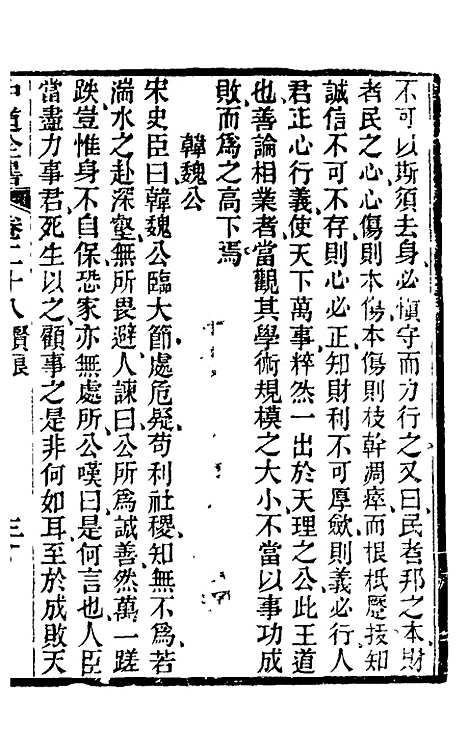 不可以斯須去身必愼守而力行之又曰民者邦之本財
者民之心心傷則本傷本傷則枝幹凋瘁而根柢蹷拔知
誠信不可不存則心必正知財利不可厚斂則義必行人
君正心行義使天下萬事粹然一出於天理之公此王道
也善論相業者當觀其學術規模之大小不當以事功成
敗而爲之高下焉
韓魏公
宋史臣曰韓魏公臨大節處危疑苟利社稷知無不爲若
湍水之赴深壑無所畏避人諫曰公所爲誠善然萬一蹉
跌豈惟身不自保恐家亦無處所公嘆曰是何言也人臣
當盡力事君死生以之顧事之是非何如耳至於成敗天
中道全書 卷二十八 賢良 三十